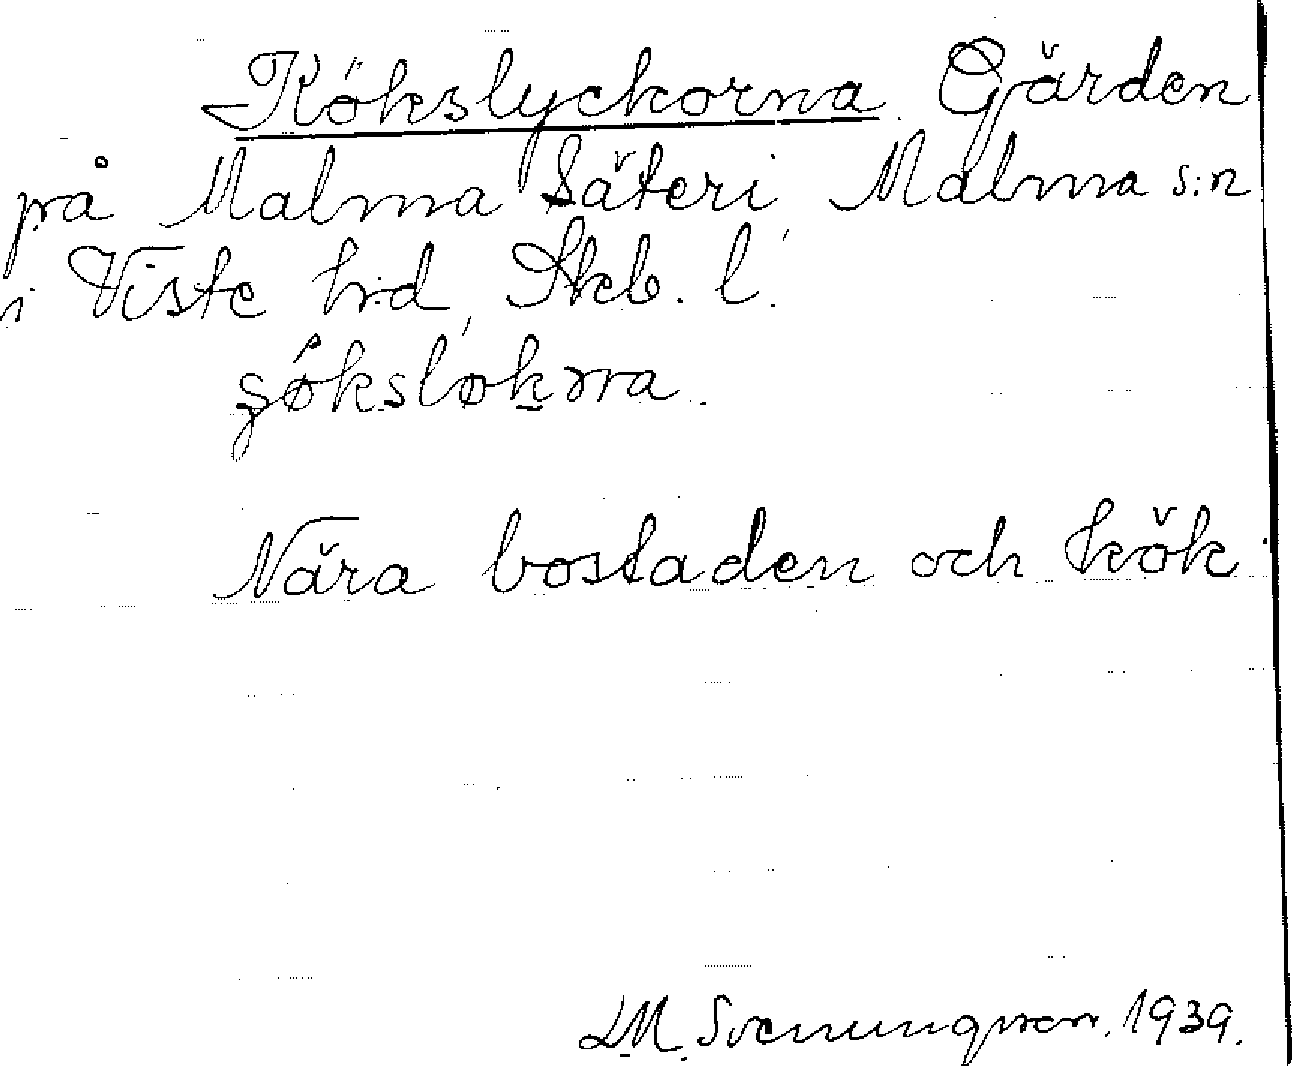 Kökslyckorna Gärden
på Malma Säteri Malma s:n
i Viste hd, Skb. l.
Nära bostaden och kök
LM. Svenungsson. 1939.